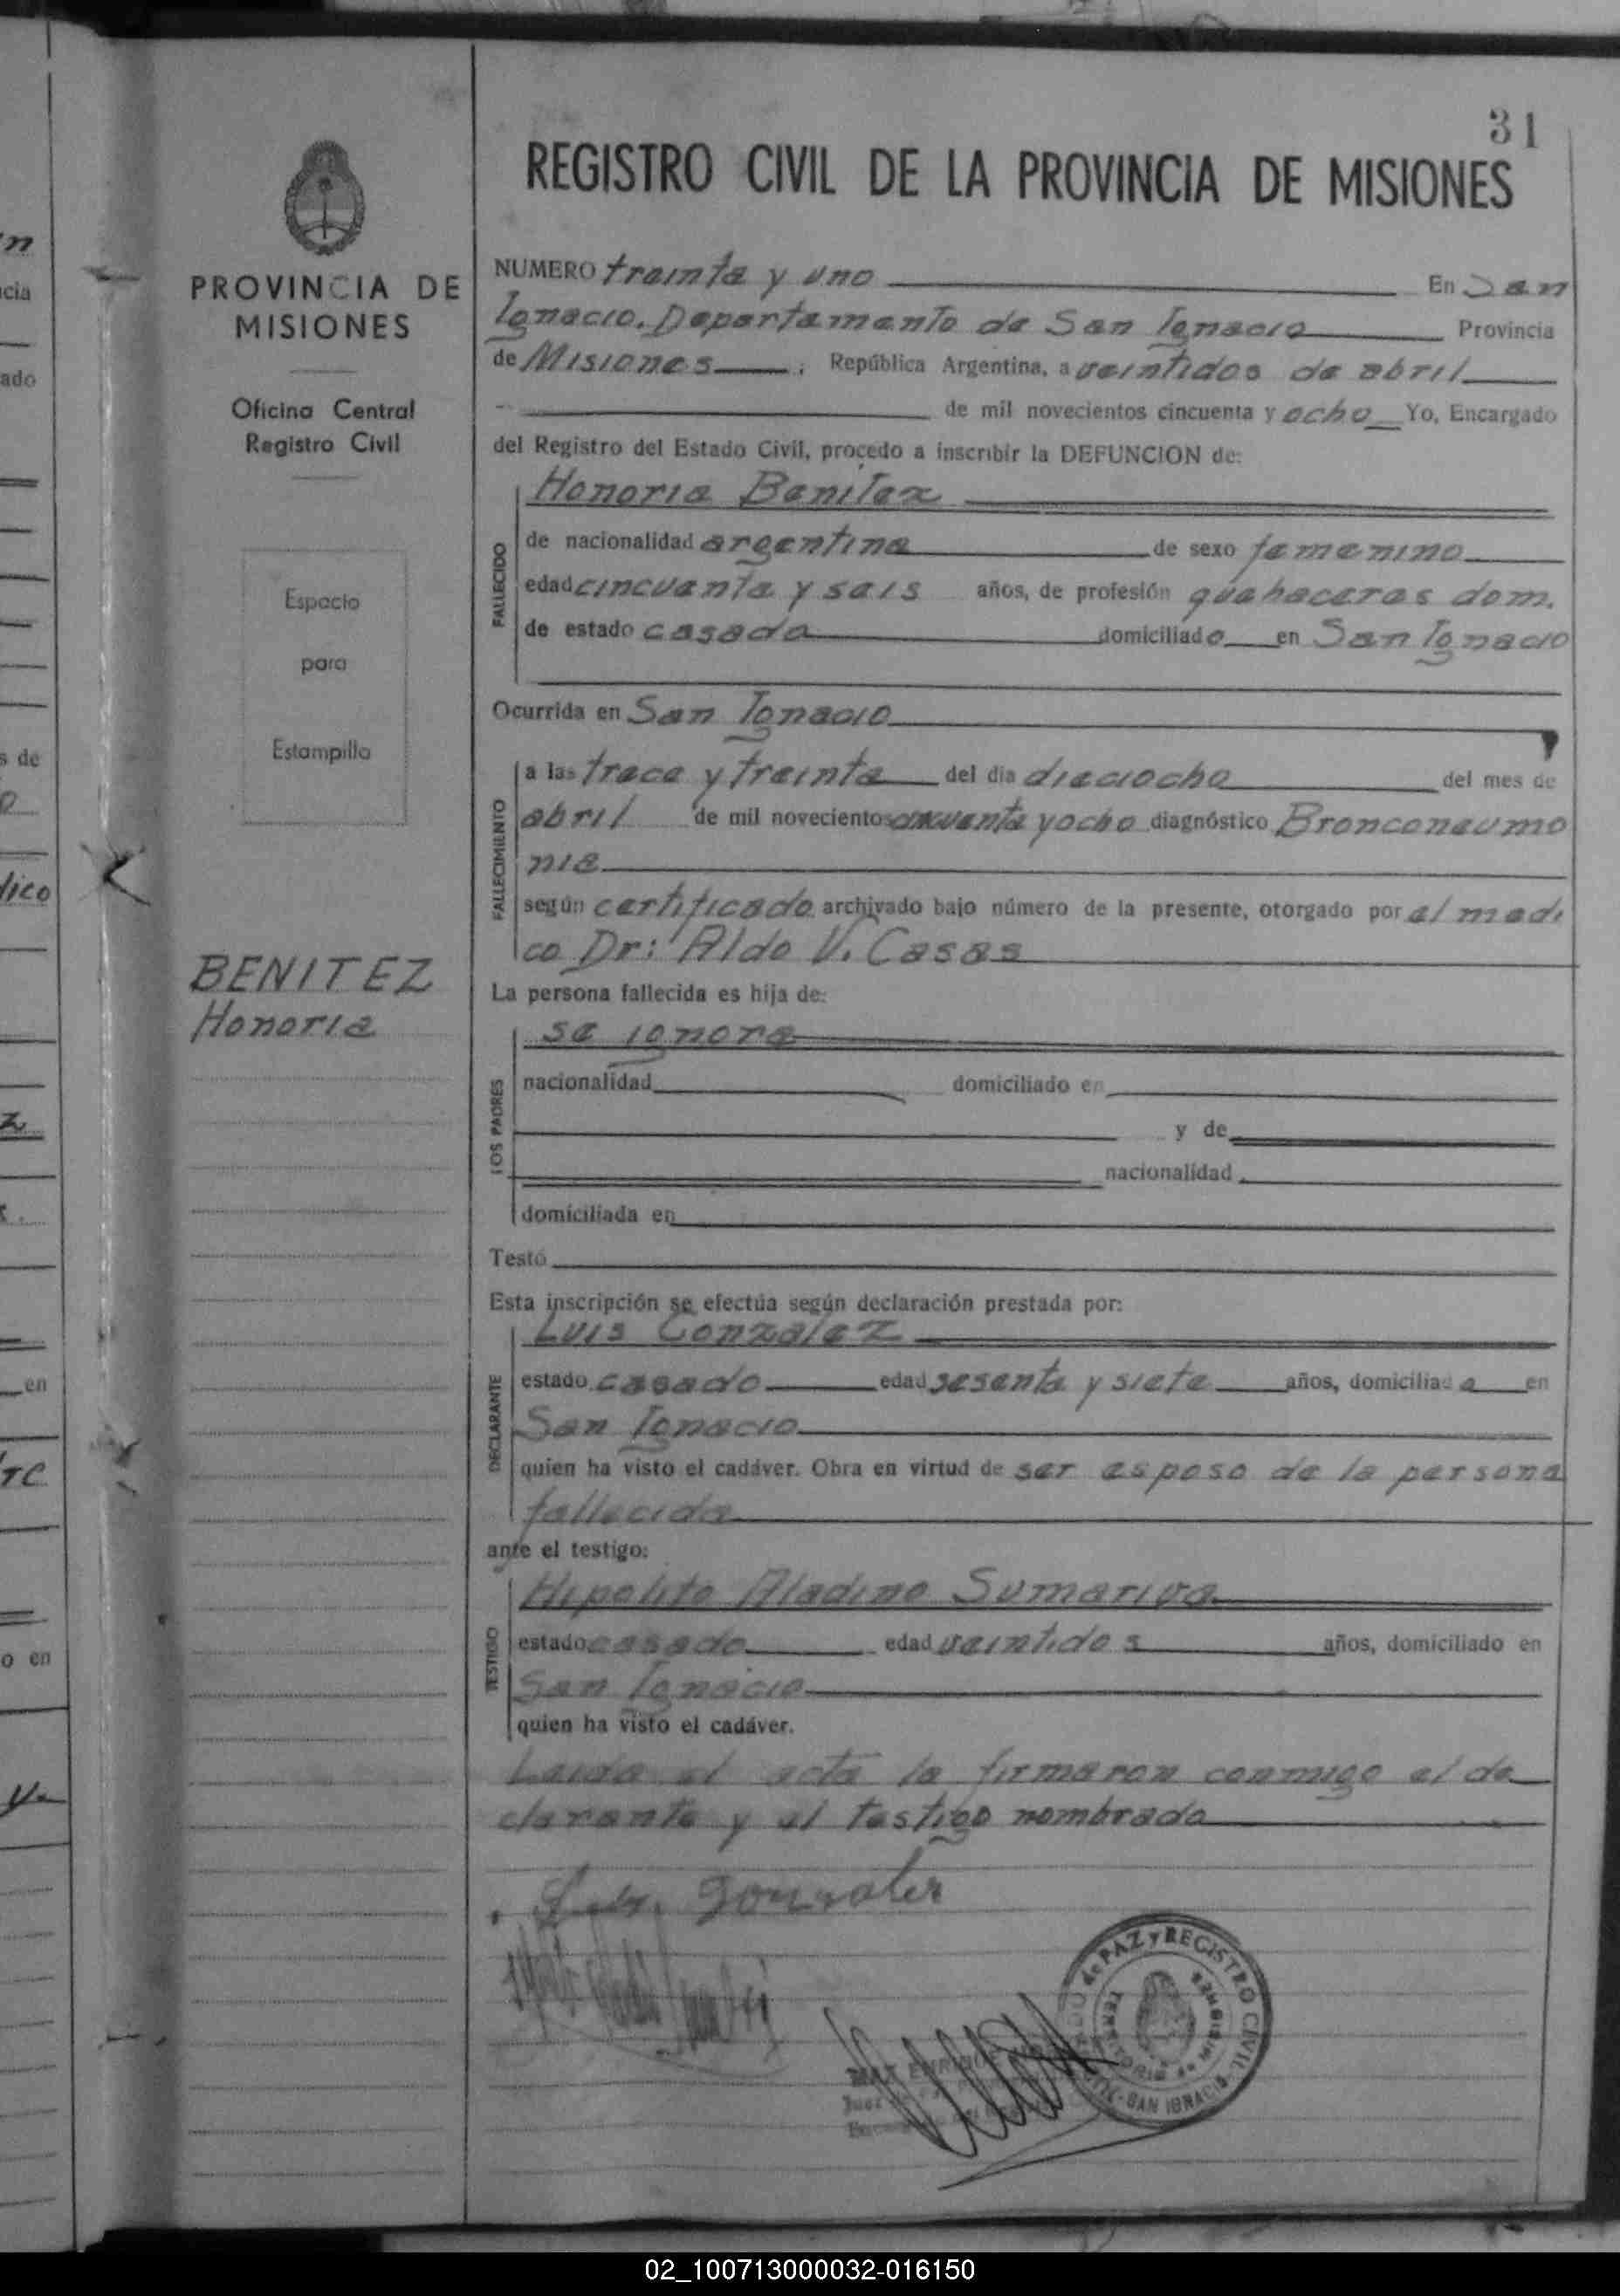 31
REGISTRO CIVIL DE LA PROVINCIA DE MISIONES
PROVINCIA DE
MISIONES
Oficina Central
Registro Civil
Espacio
para
Estampilla
BENITEZ
Honoria
NUMERO treinta y uno En San
Ignacio. Departamento de San Ignacio Provincia
de Misiones ; República Argentina, a veintidos de abril
de mil novecientos cincuenta y ocho Yo, Encargado
del Registro del Estado Civil, procedo a inscribir la DEFUNCION de:
FALLECIDO
Honoria Benitez
de nacionalidad argentina de sexo femenino
edad cincuenta y seis años, de profesión quehaceres dom.
de estado casada domiciliado en San Ignacio
Ocurrida en San Ignacio
FALLECIMIENTO
a las trece y treinta del día dieciocho del mes de
abril de mil novecientos cincuenta y ocho diagnóstico Bronconeumo
nia
según certificado archivado bajo número de la presente, otorgado por el medi
co Dr: Aldo V. Casas
La persona fallecida es hija de:
LOS PADRES
se ignora
nacionalidad domiciliado en
y de
nacionalidad
domiciliada en
Testó
Esta inscripción se efectúa según declaración prestada por:
DECLARANTE
Luis Gonzalez
estado casado edad sesenta y siete años, domiciliado en
San Ignacio
quien ha visto el cadáver. Obra en virtud de ser esposo de la persona
fallecida
ante el testigo:
TESTIGO
Hipolito Aladino Sumariva
estado casado edad veintidos años, domiciliado en
San Ignacio
quien ha visto el cadáver.
Leida el acta la firmaron conmigo el de
clarante y el testigo nombrado
Luis Gonzalez
MAX ENRIQUE
Juez de
JUZGADO de PAZ y REGISTRO CIVIL
SAN IGNACIO
TERRITORIO de MISIONES
n
cia
ado
s de
o
dico
z
en
TC
o en
02_100713000032-016150